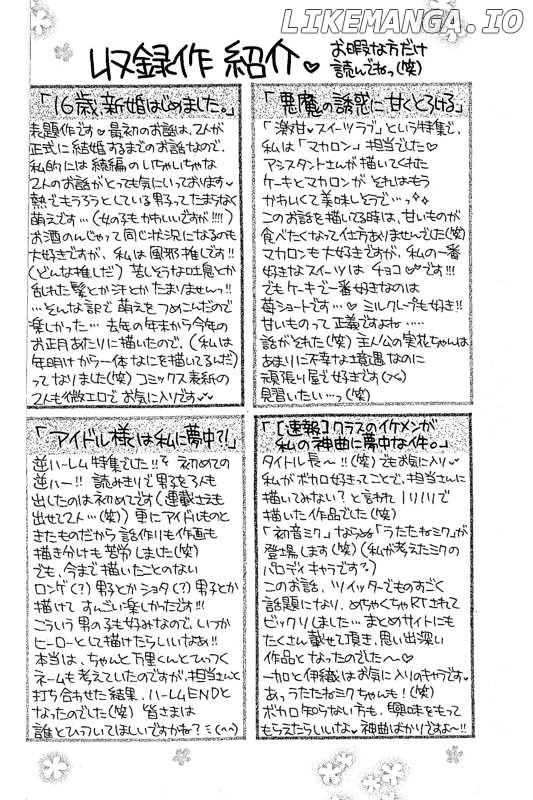 LIKEMANGA.IO
収録作紹介♡
お暇な方だけ
読んでねっ(笑)
「16歳、新婚はじめました。」
表題作です♡最初のお話は、2人が
正式に結婚するまでのお話なので、
私的には続編のいちゃいちゃな
2人のお話がとっても気にいっております♡
熱でもうろうとしている男子ってたまらなく
萌えです…(女の子もかわいいですが!!!!)
お酒のんじゃって同じ状況になるのも
大好きですが、私は風邪推しです!!
(どんな推しだ)苦しそうな吐息とか
乱れた髪とか汗とかたまりませんっ!!
…そんな訳で萌えをつめこんだので
楽しかった…去年の年末から今年の
お正月あたりに描いたので、(私は
年明けから一体なにを描いてるんだ)
ってなりました(笑)コミックス表紙の
2人も微エロでお気に入りです♡
「悪魔の誘惑に甘くとろける」
「激甘♡スイーツラブ」という特集で、
私は「マカロン」担当でした♡
アシスタントさんが描いてくれた
ケーキとマカロンがそれはもう
かわいくて美味しそうで…っ✧✧
このお話を描いてる時は、甘いものが
食べたくなって仕方ありませんでした(笑)
マカロンも大好きですが、私の一番
好きなスイーツはチョコ♡です!!!
でもケーキで一番好きなのは
苺ショートです…♡ミルクレープも好き!!
甘いものって正義ですよね……
話がそれた(笑)主人公の実花ちゃんは
あまりに不幸な境遇なのに
頑張り屋で好きです(>_<)
見習いたい…っ(笑)
「アイドル様は私に夢中?!」
逆ハーレム特集でした!!そして初めての
逆ハー!!読みきりで男を3人も
出したのは初めてです(連載さえも
出せて2人…(笑))更にアイドルものと
きたものだから話作りも作画も
描き分けも苦労しました(笑)
でも、今まで描いたことのない
ロンゲ(?)男子とかショタ(?)男子とか
描けてすんごい楽しかったです!!!
こういう男の子も好みなので、いつか
ヒーローとして描けたらいいなぁ!!
本当は、ちゃんと万里くんとてっつく
ネームも考えていたのですが、担当さんと
打ち合わせた結果、ハーレムENDと
なったのでした(笑)皆さまは
誰とひっついてほしいですかね?ミ(^^)
「[速報]クラスのイケメンが
私の神曲に夢中な件。」
タイトル長〜!!(笑)でもお気に入り♡
私がボカロ好きってことで、担当さんに
描いてみない?と言われノリノリで
描いた作品でした(笑)
「初音ミク」ならぬ「うたたねミク」が
登場します(笑)(私が考えたミクの
パロディキャラです?)
このお話、ツイッターでものすごく
話題になり、めちゃくちゃRTされて
ビックリしました…まとめサイトにも
たくさん載せて頂き、思い出深い
作品となったのでした〜♡
一加と伊織はお気に入りのキャラです。
あ、うたたねミクちゃんも!(笑)
ボカロ知らない方も、興味をもって
もらえたらいいなぁ。神曲ばかりですよ〜!!